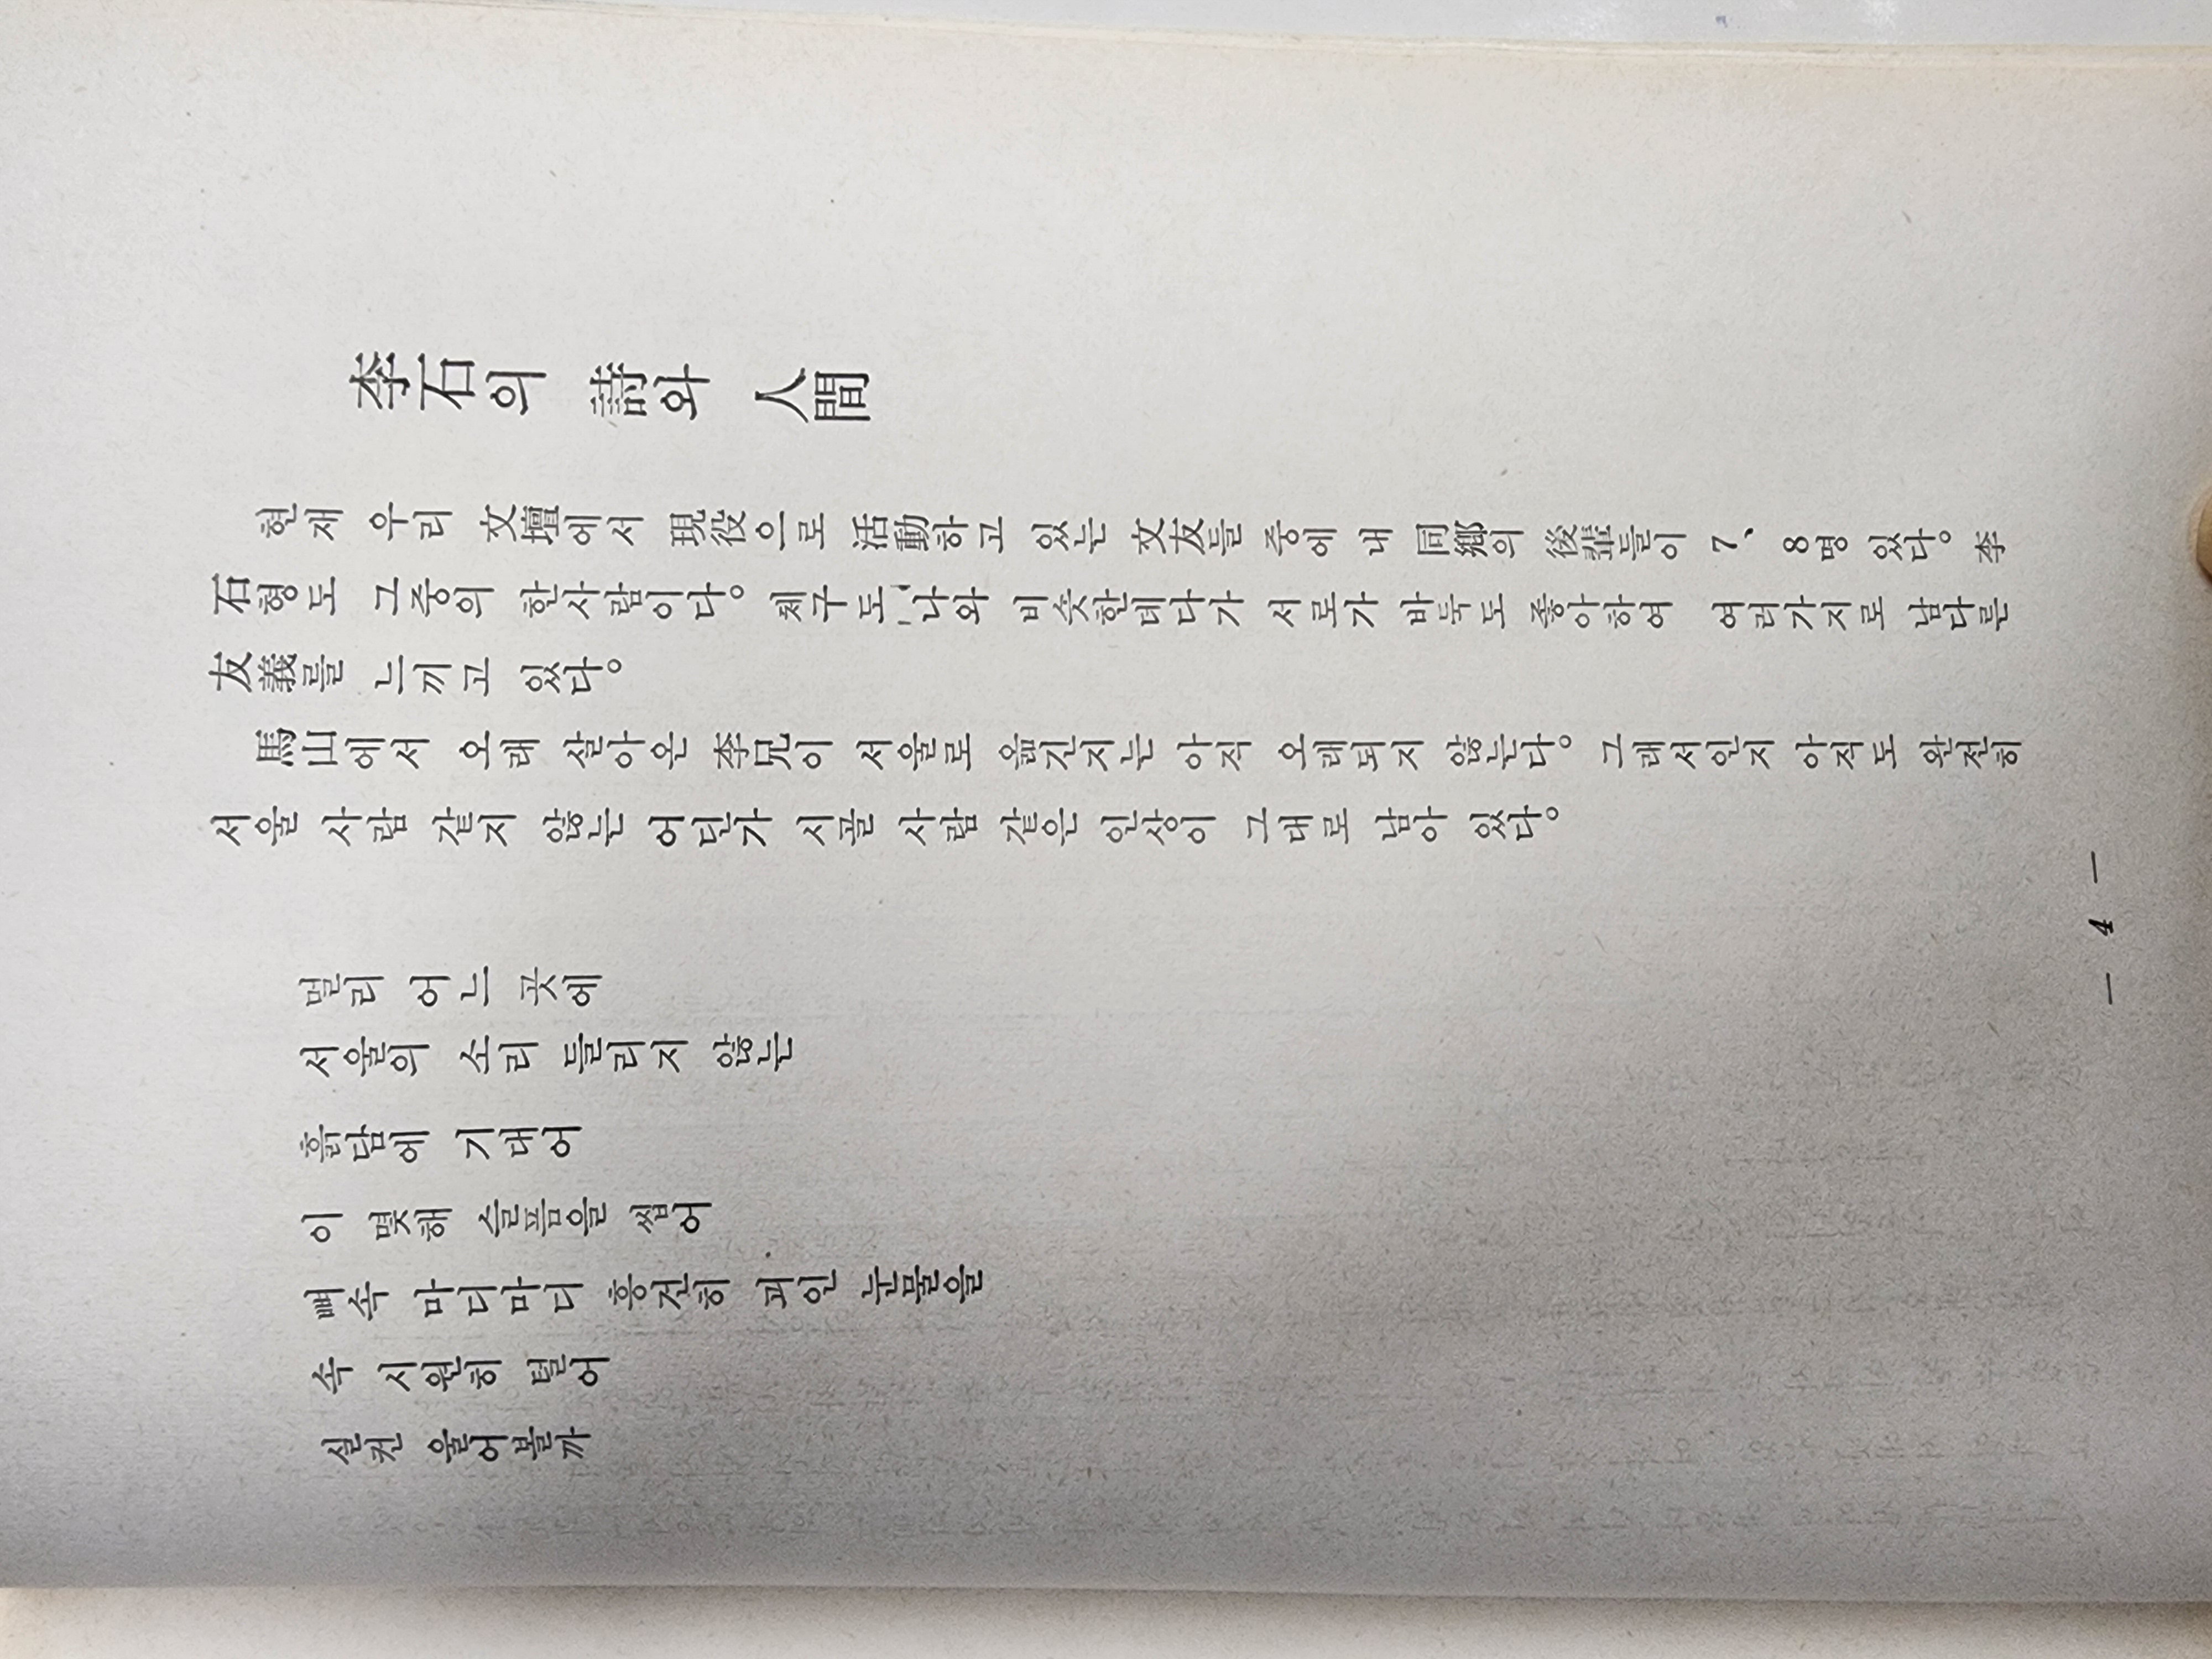 李石의 詩와 人間
현재 우리 文壇에서 現役으로 活動하고 있는 文友들 중에 내 同鄕의 後輩들이 7、8명 있다。李
石형도 그중의 한사람이다。체구도 나와 비슷한데다가 서로가 바둑도 좋아하여 여러가지로 남다른
友義를 느끼고 있다。
馬山에서 오래 살아온 李兄이 서울로 옮긴지는 아직 오래되지 않는다。그래서인지 아직도 완전히
서울 사람 같지 않는 어딘가 시골 사람 같은 인상이 그대로 남아 있다。
멀리 어느 곳에
서울의 소리 들리지 않는
흙담에 기대어
이 몇해 슬픔을 씹어
뼈속 마디마디 흥건히 괴인 눈물을
속 시원히 털어
실컨 울어볼까
— 4 —